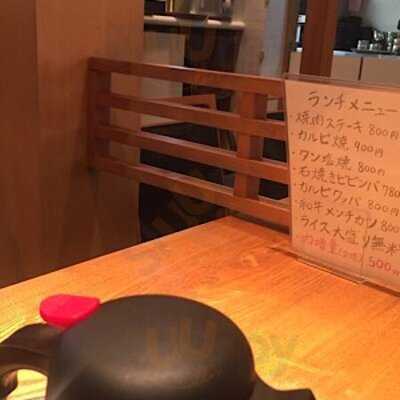 ランチメニュー
・焼肉ステーキ 800円
・カルビ焼 900円
・タン塩焼 800円
・石焼きビビンバ 780
・カルビクッパ 800円
・和牛メンチカツ 800
・ライス大盛り無料
・肉増量(2倍) 500